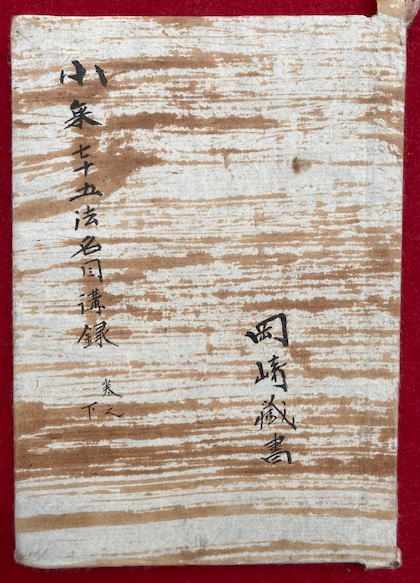 小乗七十五法名目講録
巻之
下
岡崎蔵書